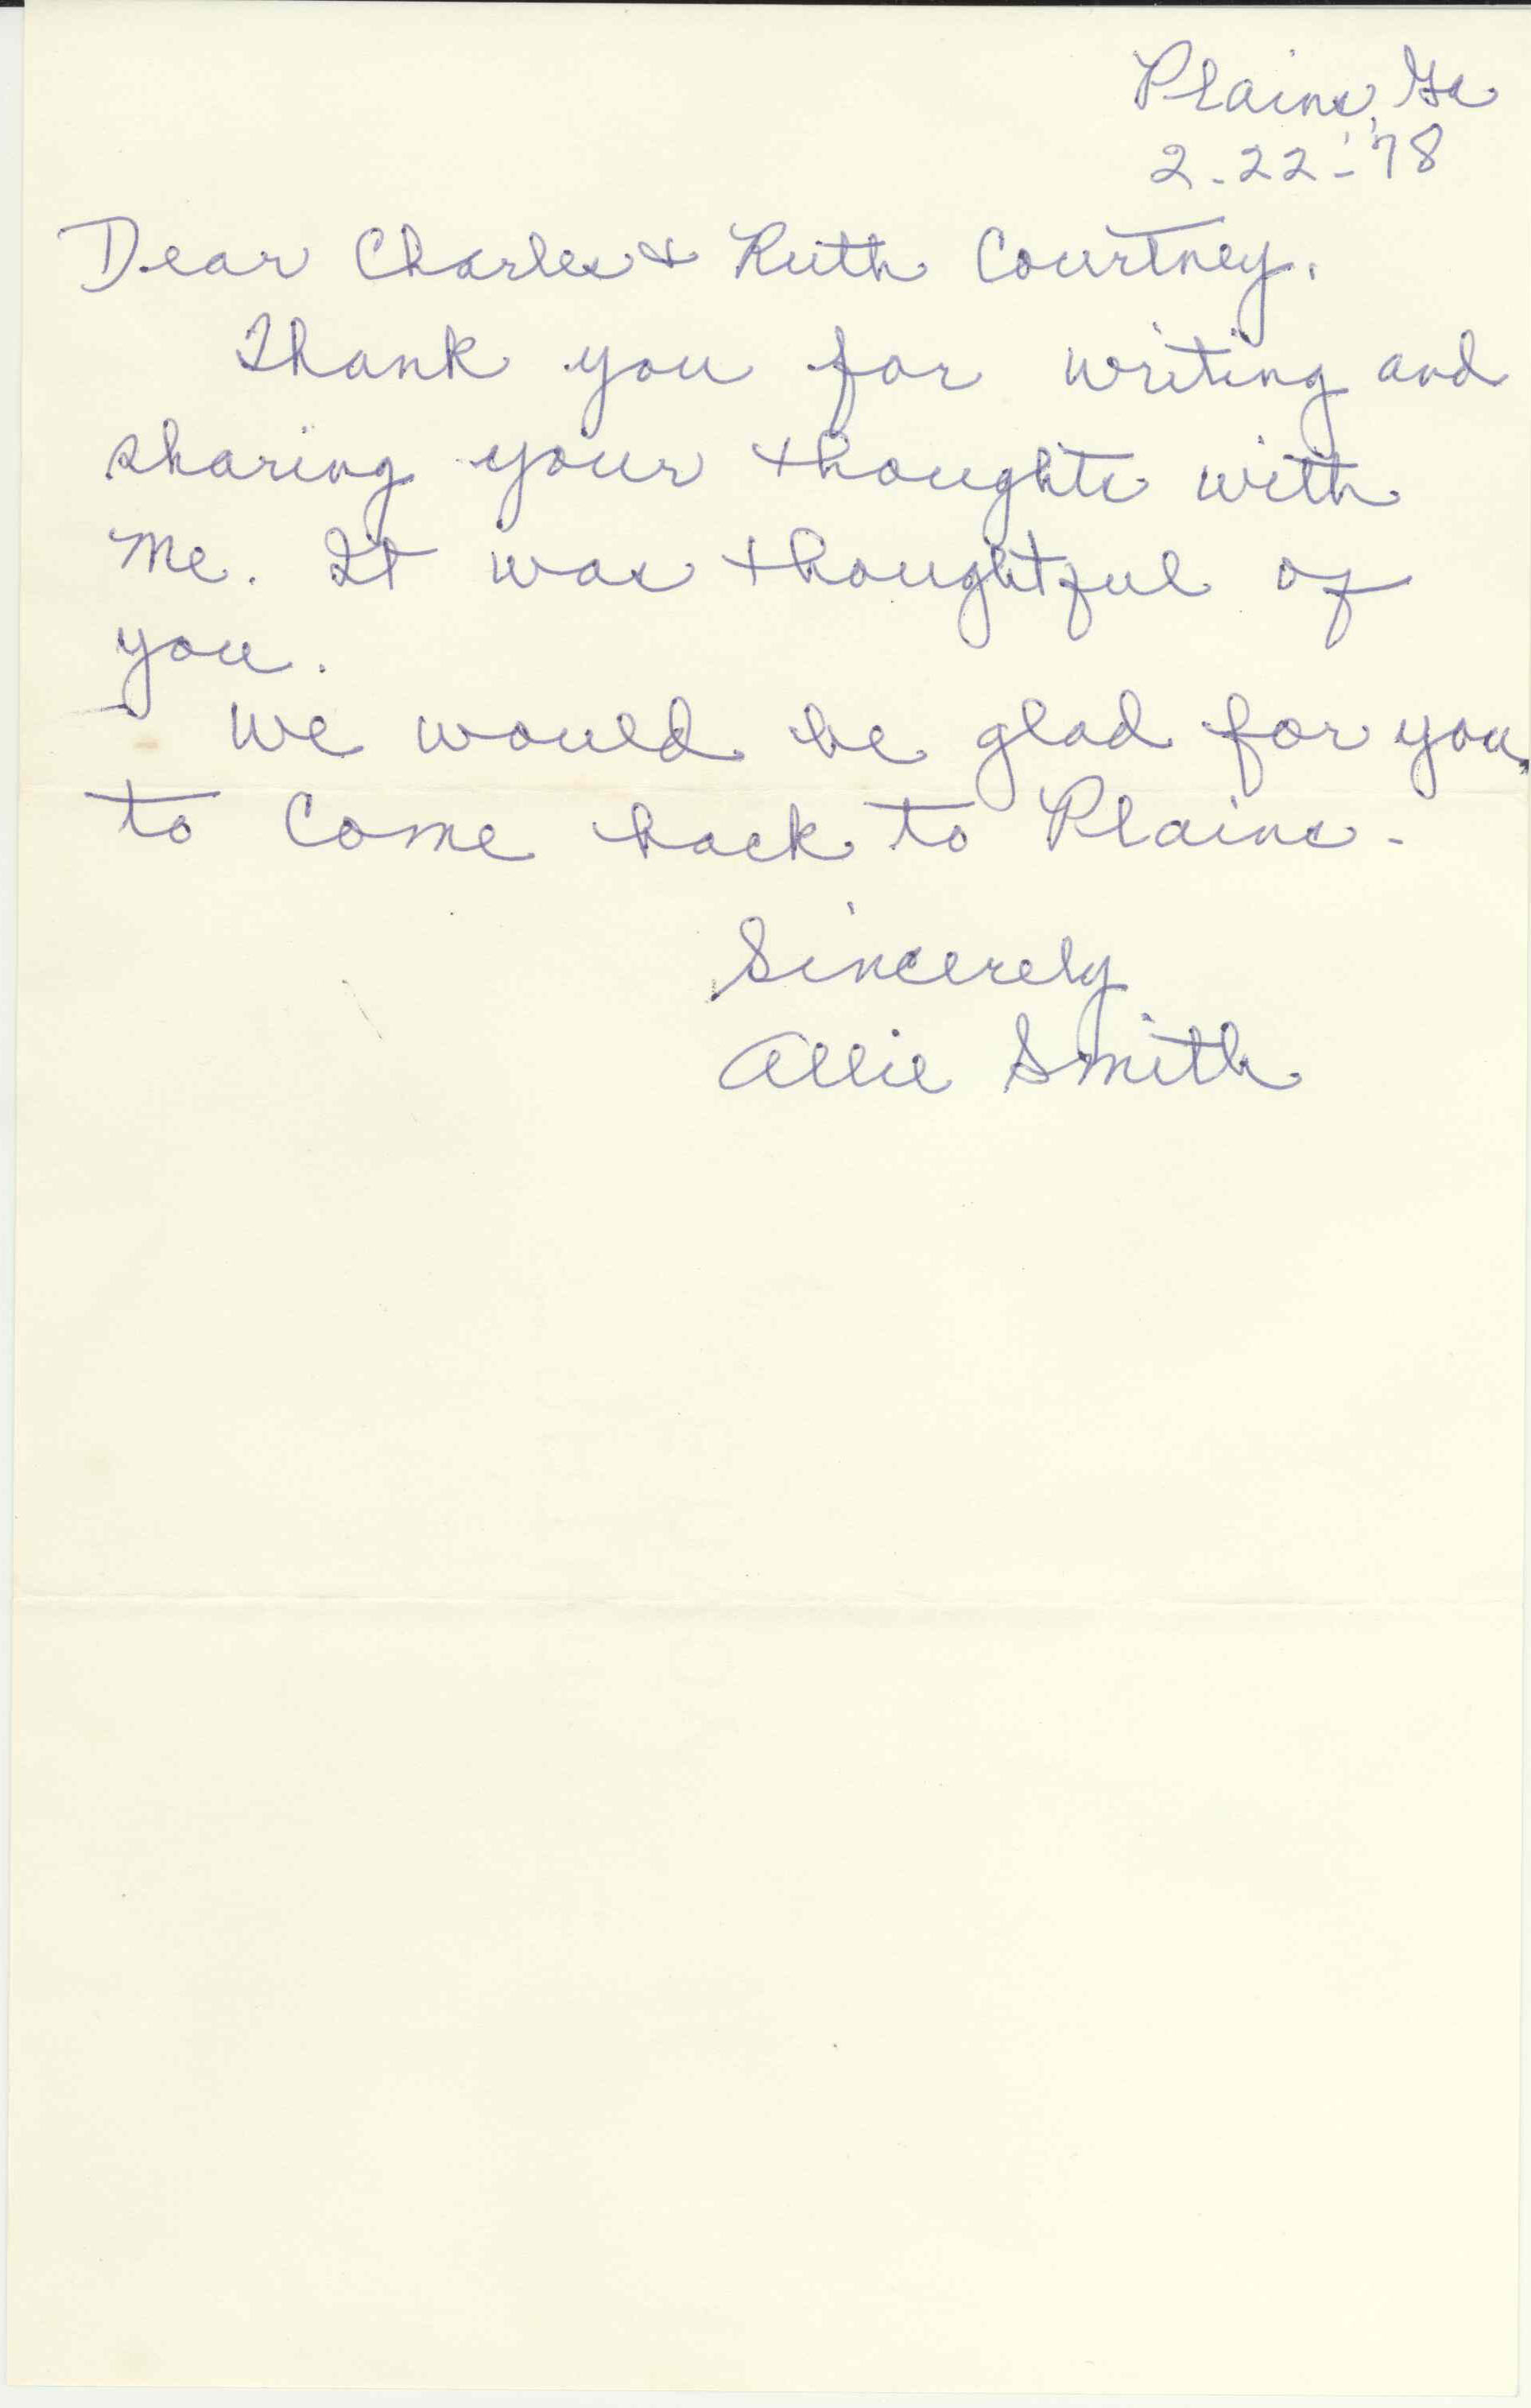 Plains, Ga
2-22-'78
Dear Charles & Ruth Courtney,
Thank you for writing and
sharing your thoughts with
me. It was thoughtful of
you.
We would be glad for you
to come back to Plains -
Sincerely
Allie Smith